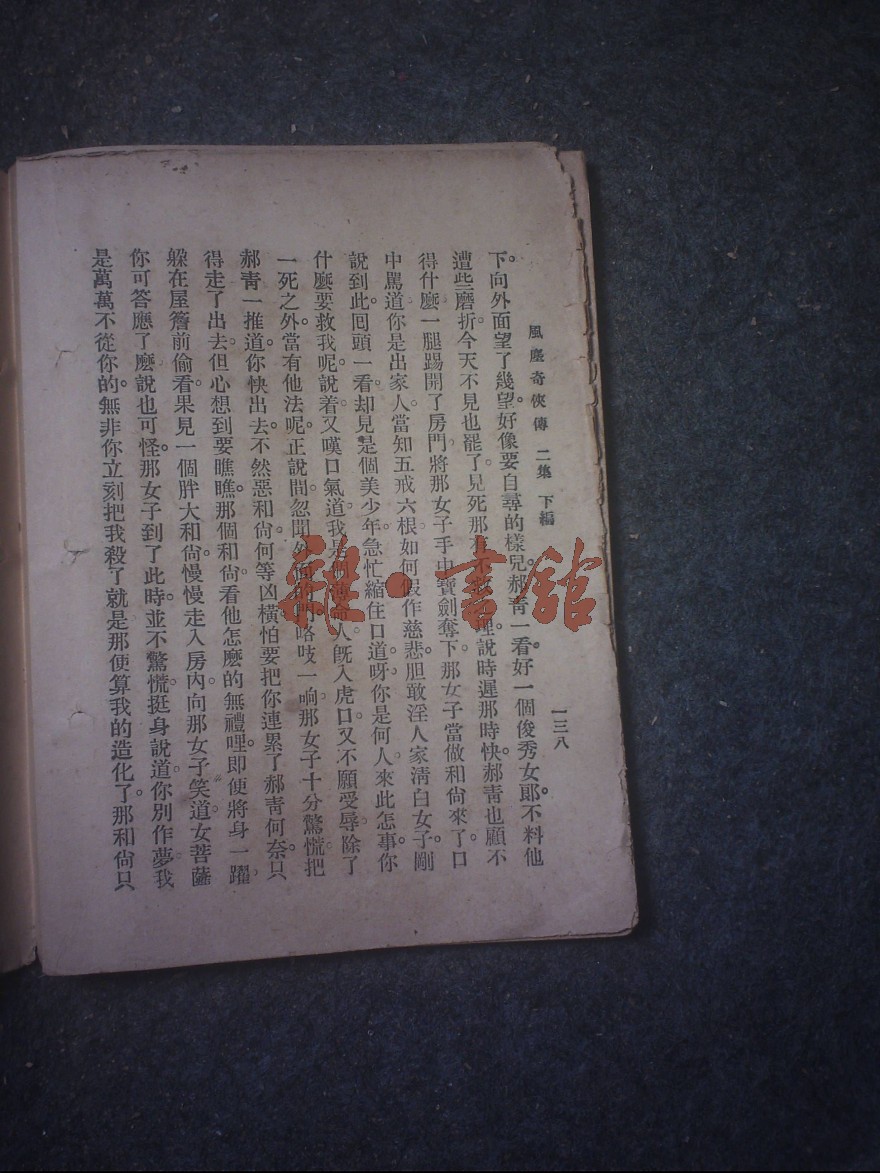 風塵奇俠傳 二集 下編
一三八
下。向外面望了幾望。好像要自尋的樣兒。郝靑一看。好一個俊秀女郞。不料他
遭些磨折。今天不見也罷了。見死那有不救 理。說時遲那時快。郝靑也顧不
得什麼一腿踢開了房門。將那女子手中寶劍奪下。那女子當做和尙來了。口
中罵道。你是出家人。當知五戒六根。如何假作慈悲。胆敢淫人家淸白女子。剛
說到此。囘頭一看。却見是個美少年。急忙縮住口道。呀。你是何人。來此怎事。你
什麼要救我呢。說着。又嘆口氣道。我是 命人。旣入虎口。又不願受辱。除了
一死之外。當有他法呢。正說間。忽聞外面 門咯吱一响。那女子十分驚慌。把
郝靑一推道。你快出去。不然惡和尙何等凶橫。怕要把你連累了。郝靑何奈。只
得走了出去。但心想到要瞧瞧那個和尙看他怎麼的無禮哩。卽便將身一躍。
躱在屋簷前偷看。果見一個胖大和尙慢慢走入房內。向那女子笑道。女菩薩
你可答應了麼。說也可怪。那女子到了此時。並不驚慌。挺身說道。你別作夢。我
是萬萬不從你的。無非你立刻把我殺了。就是那便算我的造化了。那和尙只
雜·書館